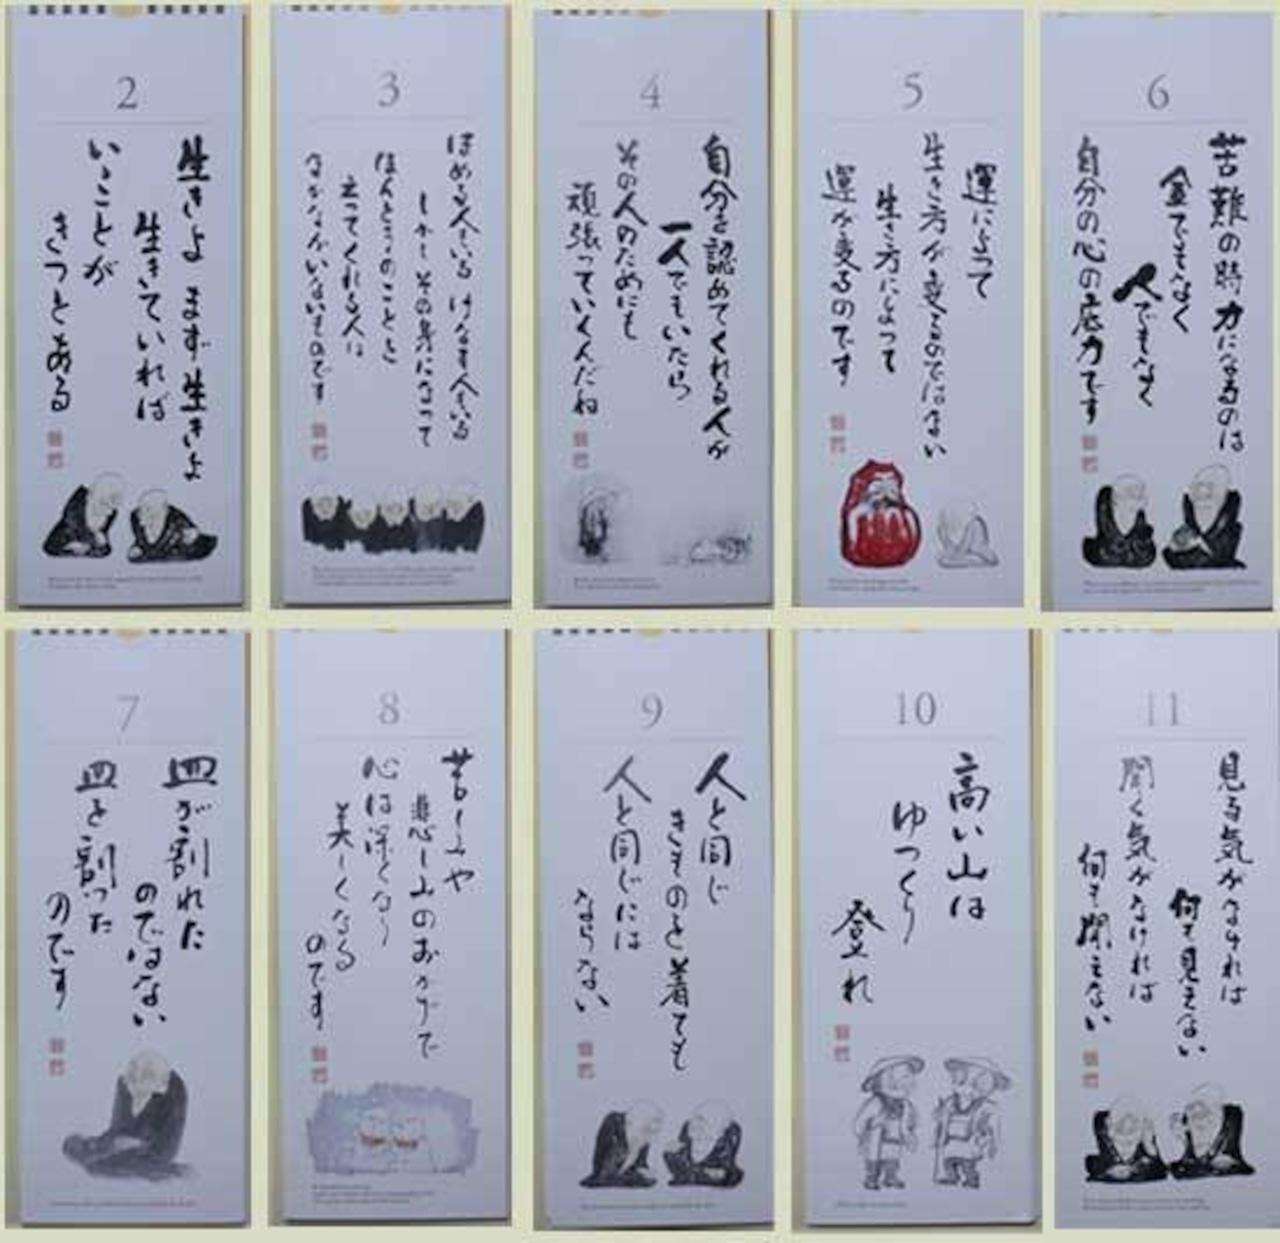 2
生きよ まず生きよ
生きていれば
いゝことが
きっとある
3
ほめる人もいる けなす人もいる
しかし その身になって
ほんとうのことを
言ってくれる人は
なかなかいないものです
4
自分を認めてくれる人が
一人でもいたら
その人のためにも
頑張っていくんだね
5
運によって
生き方が変るのではない
生き方によって
運が変るのです
6
苦難の時力になるのは
金でもなく
人でもなく
自分の心の底力です
7
皿が割れた
のではない
皿を割った
のです
8
苦しみや
悲しみのおかげで
心は深くなり
美しくなる
のです
9
人と同じ
きものを着ても
人と同じには
ならない
10
高い山は
ゆっくり
登れ
11
見る気がなければ
何も見えない
聞く気がなければ
何も聞えない